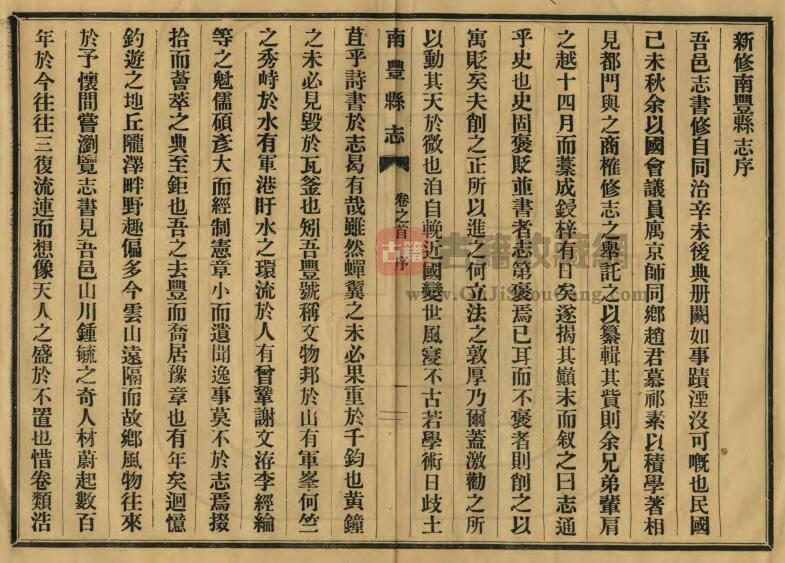 新修南豐縣志序
吾邑志書修自同治辛未後典册闕如事蹟湮沒可嘅也民國
己未秋余以國會議員寓京師同鄉趙君慕祁素以積學著相
見都門與之商榷修志之舉託之以纂輯其貲則余兄弟輩肩
之越十四月而藁成鋟梓有日矣遂揭其顚末而叙之曰志通
乎史也史固褒貶並書者志第褒焉已耳而不褒者則削之以
寓貶矣夫削之正所以進之何立法之敦厚乃爾蓋激勸之所
以動其天於微也洎自輓近國變世風寖不古若學術日歧士
南豐縣志
卷之首 序
一
苴乎詩書於志曷有哉雖然蟬翼之未必果重於千鈞也黃鐘
之未必見毀於瓦釜也矧吾豐號稱文物邦於山有軍峯何竺
之秀峙於水有軍港盱水之環流於人有曾鞏謝文洊李經綸
等之魁儒碩彥大而經制憲章小而遺聞逸事莫不於志焉掇
拾而薈萃之典至鉅也吾之去豐而喬居豫章也有年矣迴憶
釣遊之地丘隴澤畔野趣偏多今雲山遠隔而故鄉風物往來
於予懷間嘗瀏覽志書見吾邑山川鍾毓之奇人材蔚起數百
年於今往往三復流連而想像天人之盛於不置也惜卷類浩
古籍收藏網
古籍